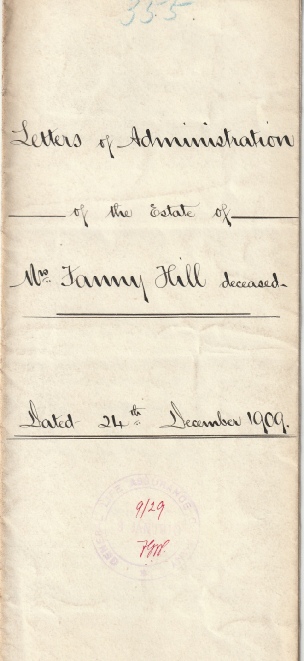 355
Letters of Administration
of the Estate of
Mrs. Fanny Hill deceased
Dated 24th December 1909.
9/29